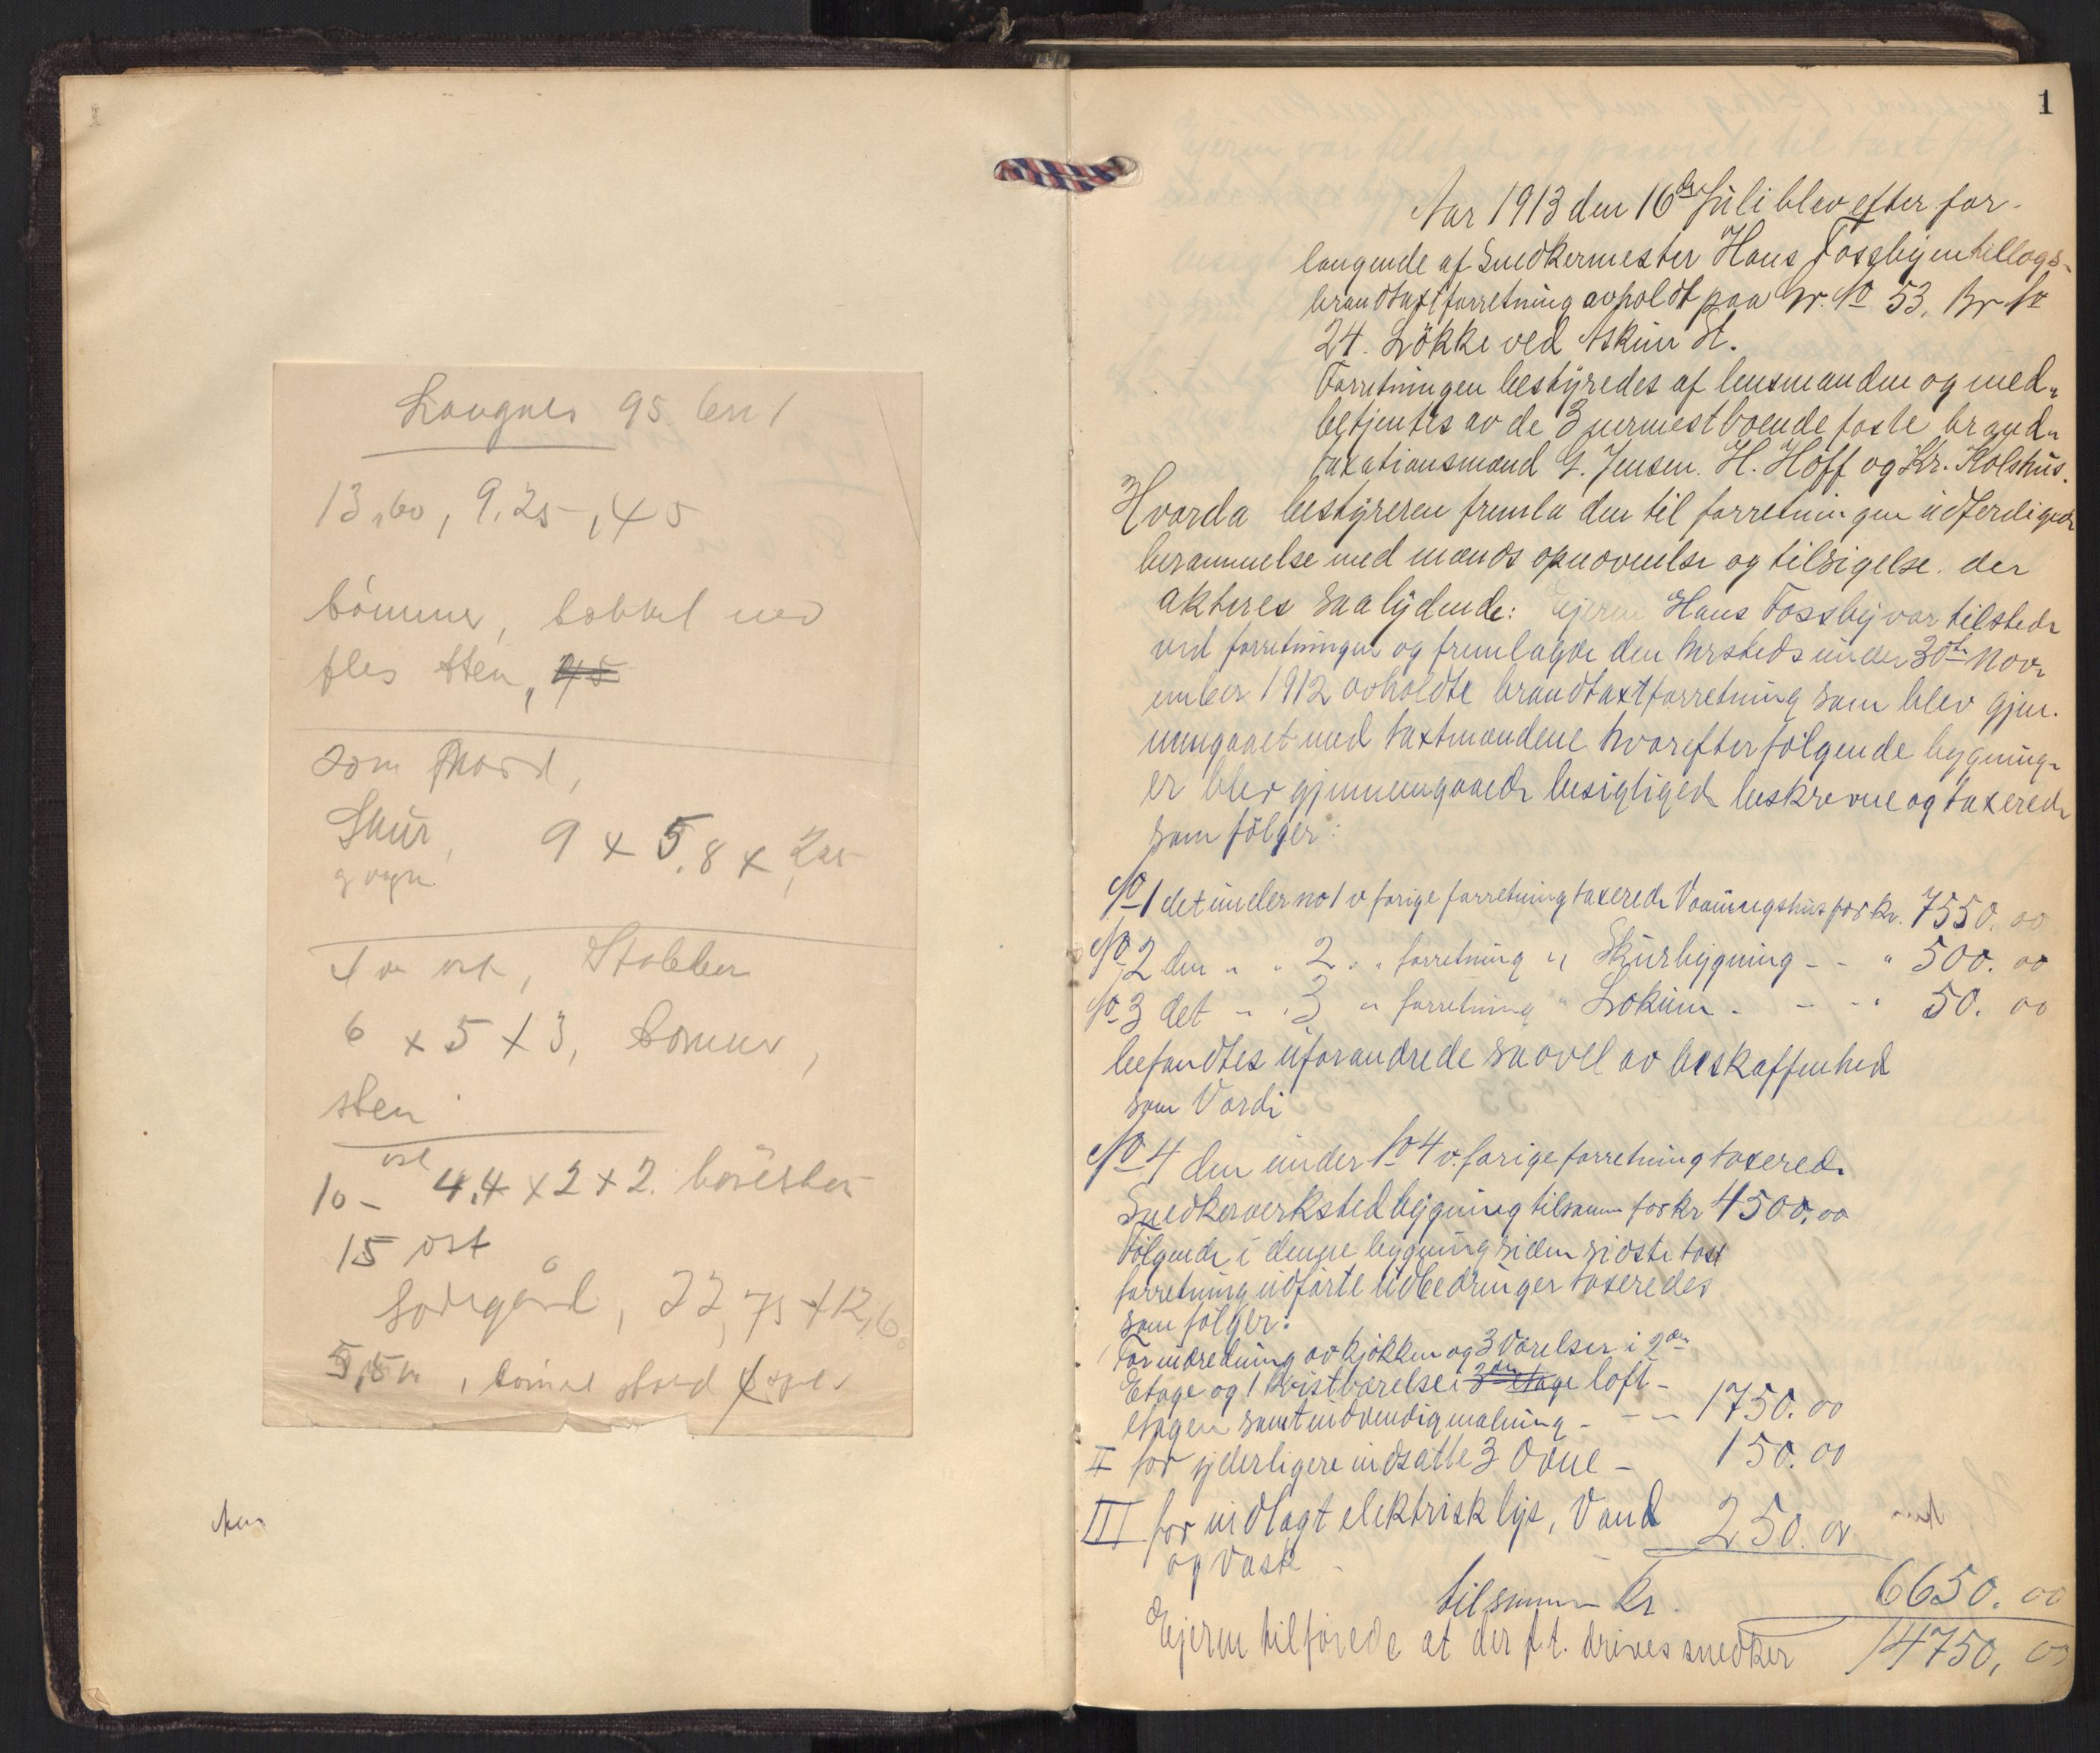 Langnes 95 brn 1
13,60, 9.25, 45
tømmer, ned
sten, 45
som
Skur, 9 x 5,8 x
Stabbur
6 x 5 x 3, tømmer,
sten
10 - øst 4,4 x 2 x 2.
15 øst
22,75 x 12,6
5,5
1
Aar 1913 den 16de Juli blev efter for-
langende af Snedkermester Hans Fossby en tillægs-
brandtaxtforretning avholdt paa Gr. No 53, Br No
24. Løkke ved Askim St.
Forretningen bestyredes af lensmanden og med-
betjentes av de 3 nærmest boende faste brand-
taxationsmænd G. Jensen. H. Hoff og Kr. Kolshus.
Hvorda bestyreren fremla den til forretningen udferdigede
berammelse med mænds opnævnelse og tilsigelse. der
akteres saalydende: Ejeren Hans Fossby var tilstede
ved forretningen og fremlagde den hersteds under 30te Nov-
ember 1912 avholdte brandtaxtforretning som blev gjen-
nemgaaet med taxtmændene hvorefter følgende bygning-
er blev gjennemgaaede besigtigede beskrevne og taxerede
som følger:
No 1 det under no 1 v forige forretning taxerede Vaaningshus for kr. 7550.00
No 2 den " " 2 " " forretning " Skurbygning - - " 500.00
No 3 det " " 3 " " forretning " Lokum - - - " 50.00
befandtes uforandrede saavel av beskaffenhed
som Værdi
No 4 den under No 4 v. forige forretning taxerede
Snedkerverksted bygning tilsamm for kr 4500,00
Følgende i denne bygning siden sidste taxt
forretning udførte udbedringer taxeredes
som følger:
For indredning av kjøkken og 3 Værelser i 2den
Etage og 1 kvistværelse i 3den etage loft-
etagen samt indvendig maling - - - 1750.00
II for yderligere indsatte 3 Ovne - 150.00
III for indlagt elektrisk lys, Vand 250.00
og vask -
tilsammen Kr. 6650.00
Ejeren tilførede at der f.t. drives snedker 14750,00